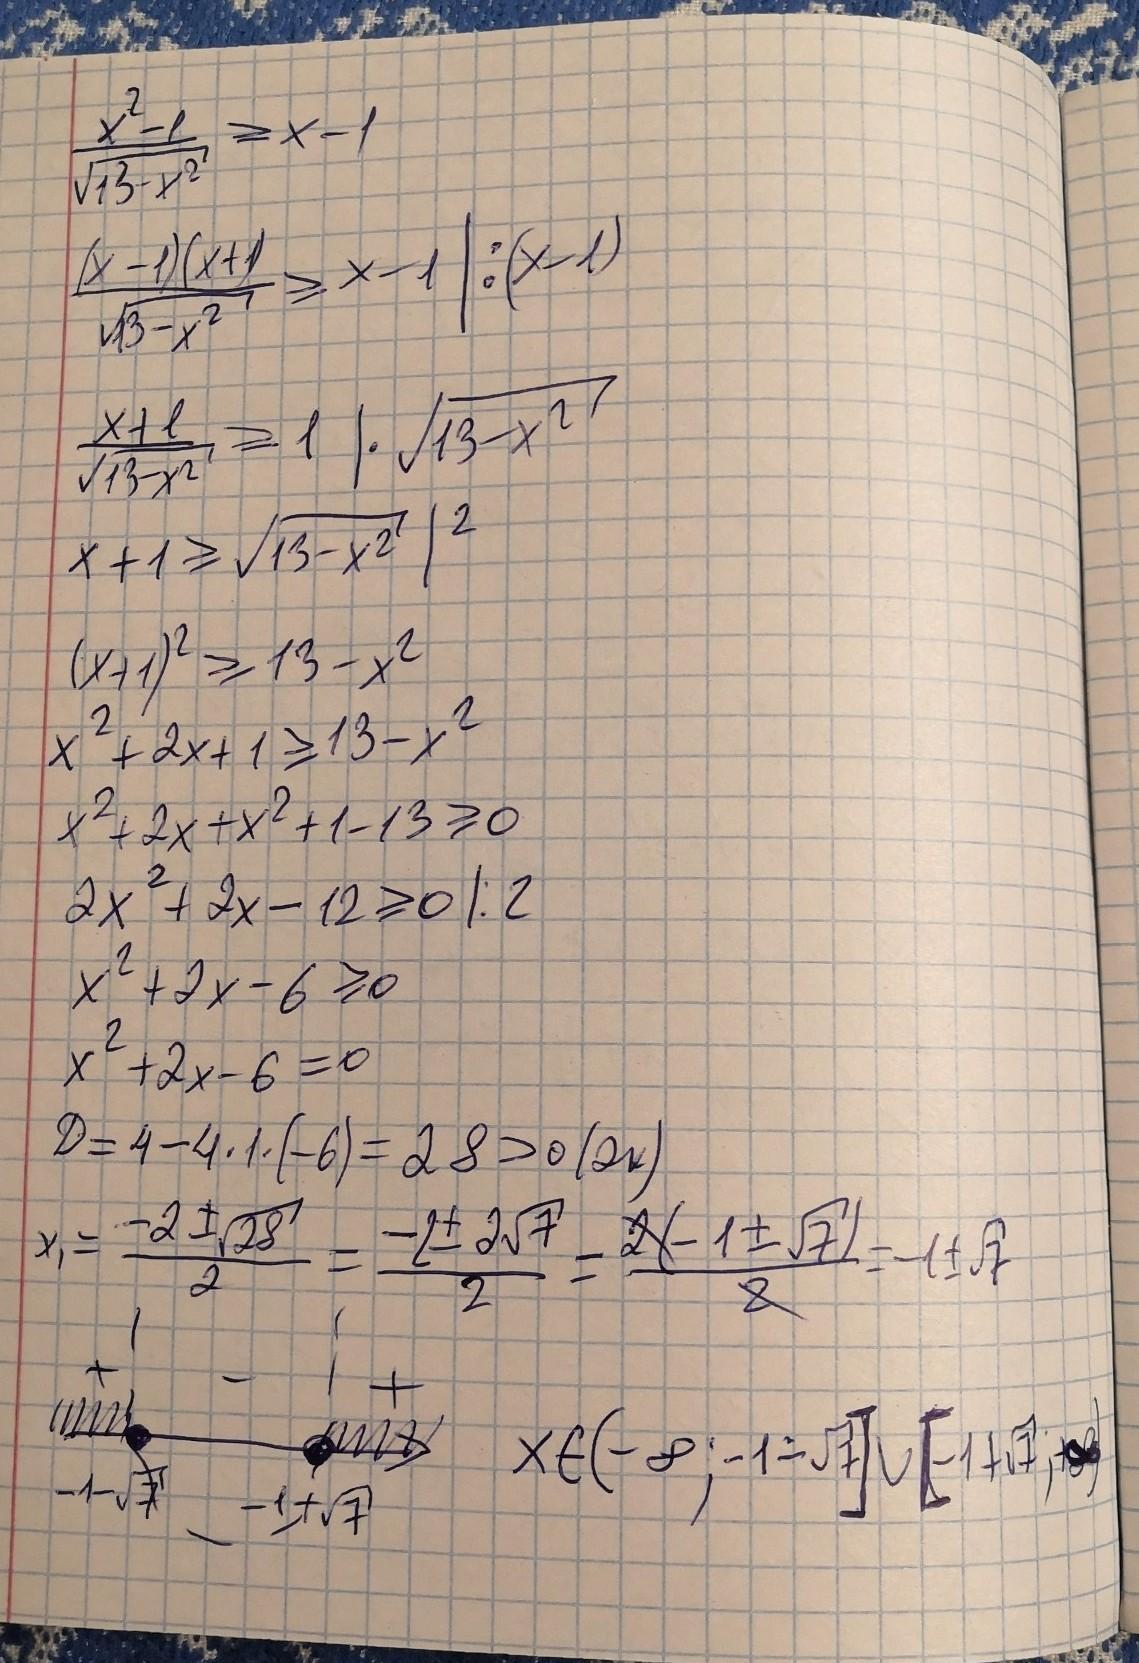 x²-1/√13-x² ⩾ x-1
(x-1)(x+1)/√13-x² ⩾ x-1 | :(x-1)
x+1/√13-x² ⩾ 1 | · √13-x²
x+1 ⩾ √13-x² |²
(x+1)² ⩾ 13-x²
x²+2x+1 ⩾ 13-x²
x²+2x+x²+1-13 ⩾ 0
2x²+2x-12 ⩾ 0 |:2
x²+2x-6 ⩾ 0
x²+2x-6=0
D=4-4·1·(-6)=28>0 (2к)
x₁ = -2±√28/2 = -2±2√7/2 = 2(-1±√7)/2 = -1±√7
+ - +
-1-√7 -1+√7 x∈(-∞;-1-√7]∪[-1+√7;+∞)